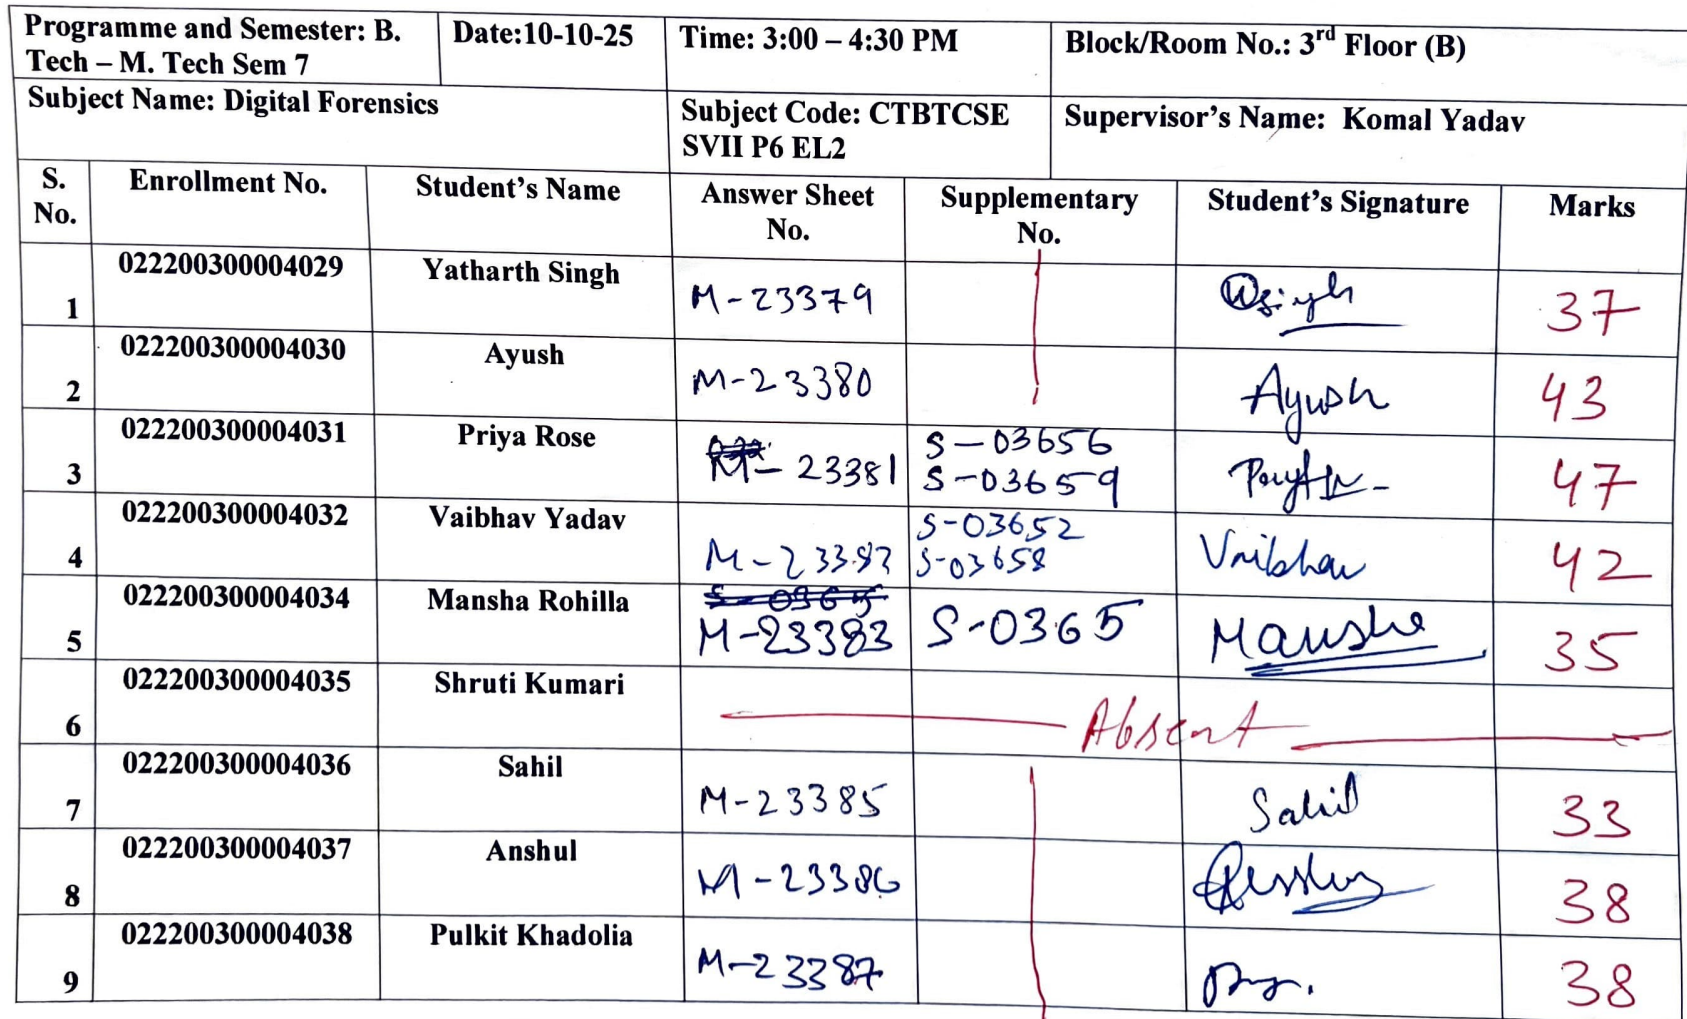 Programme and Semester: B. Tech – M. Tech Sem 7
Date:10-10-25
Time: 3:00 – 4:30 PM
Block/Room No.: 3rd Floor (B)
Subject Name: Digital Forensics
Subject Code: CTBTCSE SVII P6 EL2
Supervisor's Name: Komal Yadav
S. No. Enrollment No. Student's Name Answer Sheet No. Supplementary No. Student's Signature Marks
1 022200300004029 Yatharth Singh M-23379 37
2 022200300004030 Ayush M-23380 Ayush 43
3 022200300004031 Priya Rose M-23381 S-03656 S-03659 47
4 022200300004032 Vaibhav Yadav M-23382 S-03652 S-03658 Vaibhav 42
5 022200300004034 Mansha Rohilla S-0365 M-23383 S-0365 Mansha 35
6 022200300004035 Shruti Kumari Absent
7 022200300004036 Sahil M-23385 Sahil 33
8 022200300004037 Anshul M-23386 38
9 022200300004038 Pulkit Khadolia M-23387 38